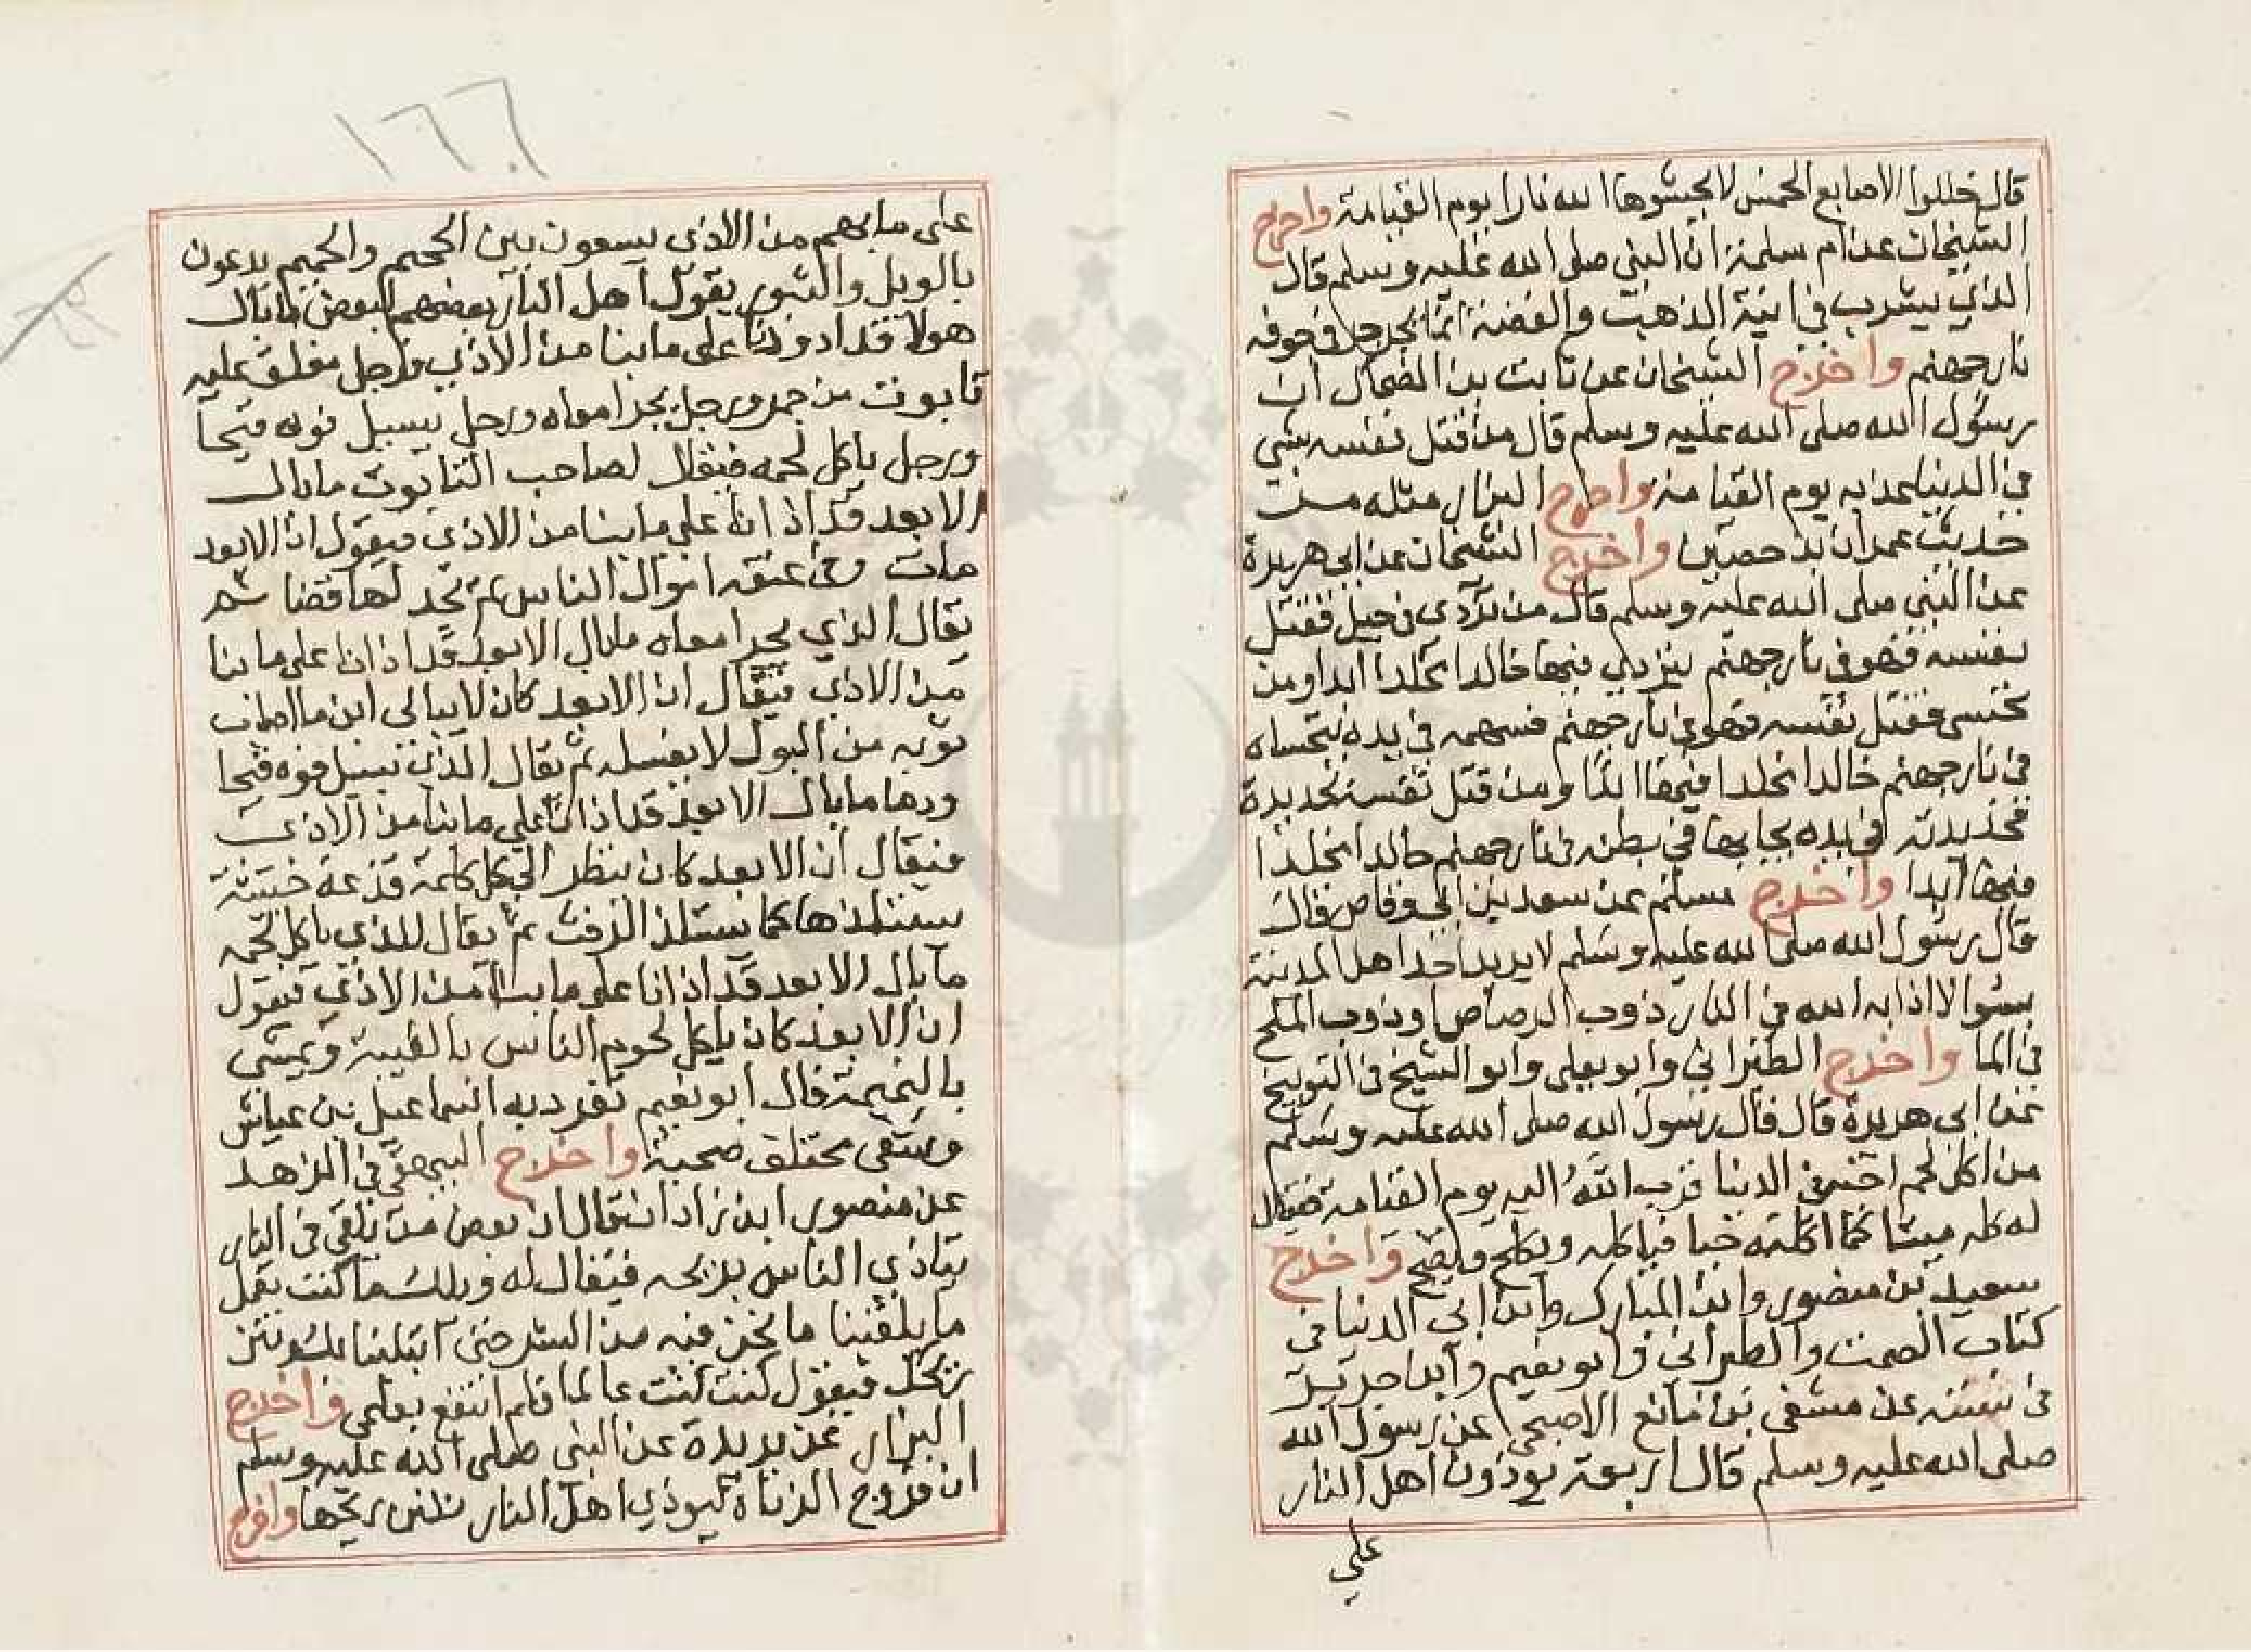 قال خللوا الاصابع الخمس لا يحشوها الله نارا يوم القيامة واخرج
الشيخان عن ام سلمة ان النبي صلى الله عليه وسلم قال
الذي يشرب في انية الذهب والفضة انما يجرجل في جوفه
نار جهنم واخرج الشيخان عن ثابت بن الضحاك ان
رسول الله صلى الله عليه وسلم قال من قتل نفسه بشي
في الدنيا عذابه يوم القيامة واخرج البزار مثله من
حديث عمران بن حصين واخرج الشيخان عن ابي هريرة
عن النبي صلى الله عليه وسلم قال من تردى في جبل فقتل
نفسه فهو في نار جهنم يتردي فيها خالدا مخلدا ابدا ومن
تحسى فقتل نفسه فهو في نار جهنم فسهمه في يده يتحساه
في نار جهنم خالدا مخلدا فيها ابدا ومن قتل نفسه بحديدة
فحديدته في يده يجابها في بطنه في نار جهنم خالدا مخلدا
فيها ابدا واخرج مسلم عن سعد بن ابي وقاص قال
قال رسول الله صلى الله عليه وسلم لا يريد احد اهل المدينة
بسوا الا اذابه الله في النار ذوب الرصاص او ذوب الملح
في الما واخرج الطبراني وابو يعلى وابو الشيخ في التوبيخ
عن ابي هريرة قال قال رسول الله صلى الله عليه وسلم
من اكل لحم اخيه في الدنيا قرب الله اليه يوم القيامة فيقال
له كله ميتا كما اكلته حيا فياكله ويكلح ويضج واخرج
سعيد بن منصور وابن المبارك وابن ابي الدنيا في
كتاب الصمت والطبراني وابو نعيم وابدا جرير
في عن مشفي بن مانع الاصبحي عن رسول الله
صلى الله عليه وسلم قال اربعة يوذون اهل النار
علي
١٦٦
على ما بهم من الاذي يسعون بين الحميم والجحيم يدعون
بالويل والثبور يقول اهل النار بعضهم لبعض ما بال
هولا قد اذونا على ما بنا من الاذي فرجل مغلق عليه
تابوت من جمر ورجل يجر امعاه ورجل يسيل فوه قيحا
ورجل ياكل لحمه فيقال لصاحب التابوت ما بال
الابعد قد اذانا علي ما بنا من الاذي فيقول ان الابعد
مات وفي عنقه اموال الناس لم تجد لها قضا ثم
يقال الذي يجر امعاه ما بال الابعد قد اذانا على ما بنا
من الاذي فيقال ان الابعد كان لا يبالي اين ما اصاب
ثوبه من البول لا يغسله ثم يقال الذي يسيل فوه قيحا
ودما ما بال الابعد قد اذانا علي ما بنا من الاذي
فيقال ان الابعد كان ينظر الي كل كلمة قذعة خبيثة
يستلذها كما يستلذ الرفث ثم يقال للذي ياكل لحمه
ما بال الابعد قد اذانا على ما بنا من الاذي فيقول
ان الابعد كان ياكل لحوم الناس بالغيبة ويمشي
بالنميمة قال ابو نعيم تفرد به اسماعيل بن عياش
وشفى مختلف صحبته واخرج البيهقي في الزهد
عن منصور ابن زادان قال ان بعض من يلقي في النار
يتاذي الناس بريحه فيقال له ويلك ما كنت تعمل
ما يلفينا ما نحن فيه من الشر حتى ابتلينا بك وبنتن
ريحك فيقول كنت كنت عالما فلم انتفع بعلمي واخرج
البزار عن بريدة عن النبي صلى الله عليه وسلم
ان فروج الزناة ليوذي اهل النار نتن ريحها واخرج